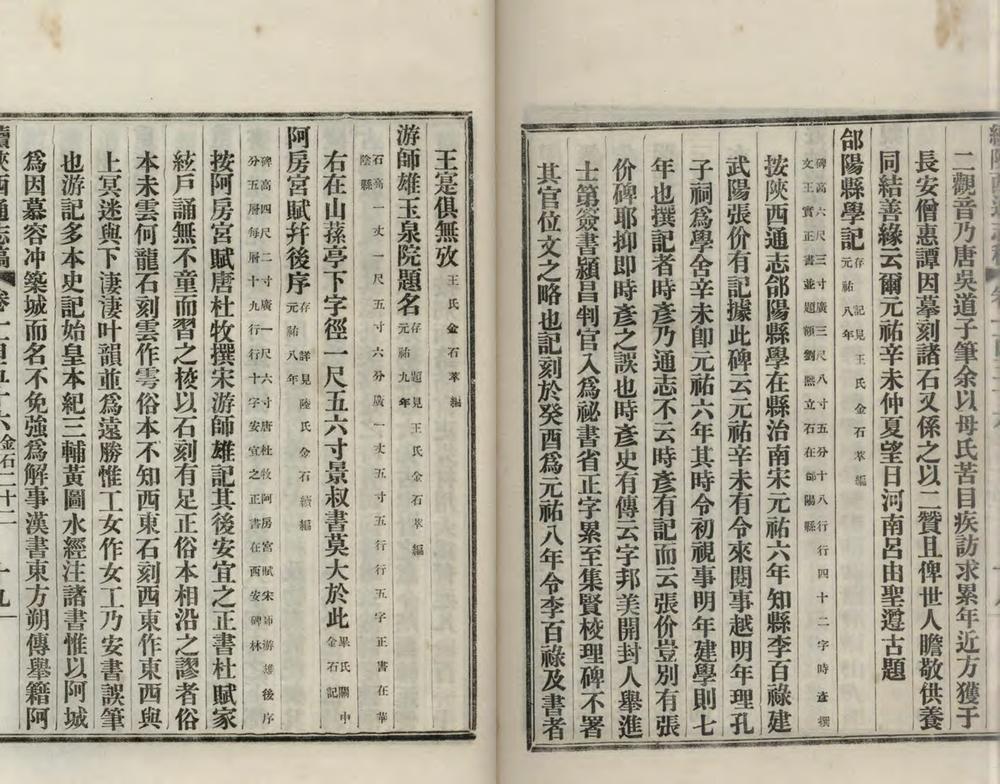 二觀音乃唐吳道子筆余以母氏苦目疾訪求累年近方獲于
長安僧惠譚因摹刻諸石又係之以二贊且俾世人瞻敬供養
同結善緣云爾元祐辛未仲夏望日河南呂由聖遵古題
郃陽縣學記存見王氏金石萃編元祐八年
碑高六尺三寸廣三尺八寸五分十八行行四十二字時彥撰文王實正書並題額劉熙立石在郃陽縣
按陝西通志郃陽縣學在縣治南宋元祐六年知縣李百祿建
武陽張价有記據此碑云元祐辛未有令來閱事越明年理孔
子祠爲學舍辛未卽元祐六年其時令初視事明年建學則七
年也撰記者時彥乃通志不云時彥有記而云張价豈別有張
价碑耶抑即時彥之誤也時彥史有傳云字邦美開封人舉進
士第簽書潁昌判官入爲祕書省正字累至集賢校理碑不署
其官位文之略也記刻於癸酉爲元祐八年令李百祿及書者
王寔俱無攷王氏金石萃編
游師雄玉泉院題名存題見王氏金石萃編元祐九年
石高一丈一尺五寸六分廣一丈五寸五行行五字正書在華陰縣
右在山蓀亭下字徑一尺五六寸景叔書莫大於此畢氏關中金石記
阿房宮賦幷後序存詳見陸氏金石續編元祐八年
碑高四尺二寸廣一尺六寸唐杜牧阿房宮賦宋游師雄後序分五層每層十九行行十字安宜之正書在西安碑林
按阿房宮賦唐杜牧撰宋游師雄記其後安宜之正書杜賦家
絃戶誦無不童而習之校以石刻有足正俗本相沿之謬者俗
本未雲何龍石刻雲作雩俗本不知西東石刻西東作東西與
上冥迷與下淒淒叶韻並爲遠勝惟工女作女工乃安書誤筆
也游記多本史記始皇本紀三輔黃圖水經注諸書惟以阿城
爲因慕容冲築城而名不免強爲解事漢書東方朔傳舉籍阿